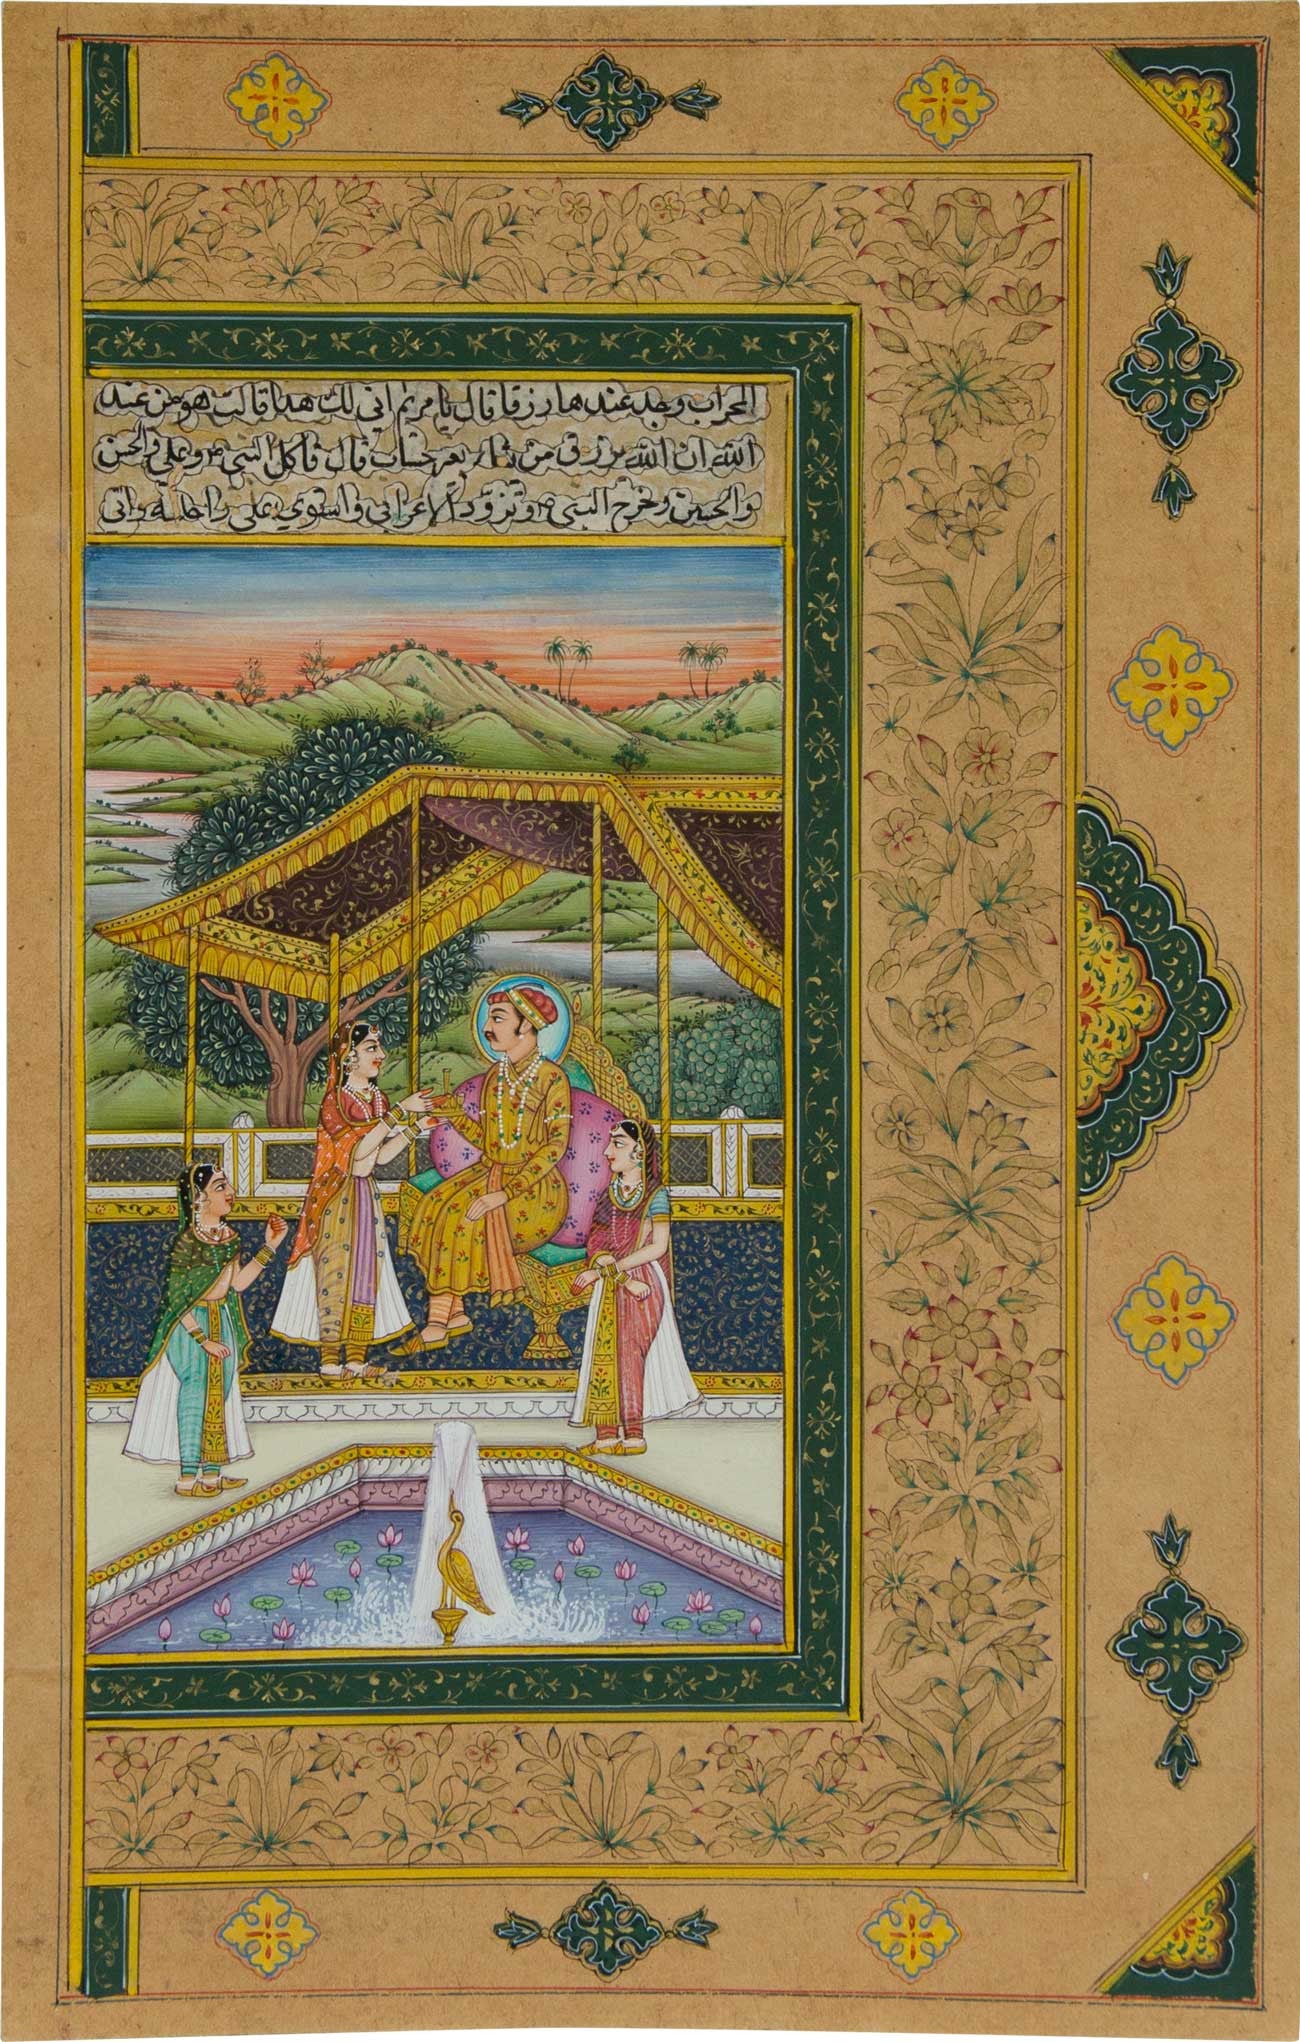 المحراب وجد عندها رزقا قال يا مريم اني لك هذا قالت هو من عند
الله ان الله يرزق من يشاء بغير حساب قال فاكل النبي ص وعلي والحسن
والحسين وخرج النبي ص وتزود الاعرابي واستوي علي راحلته واتى